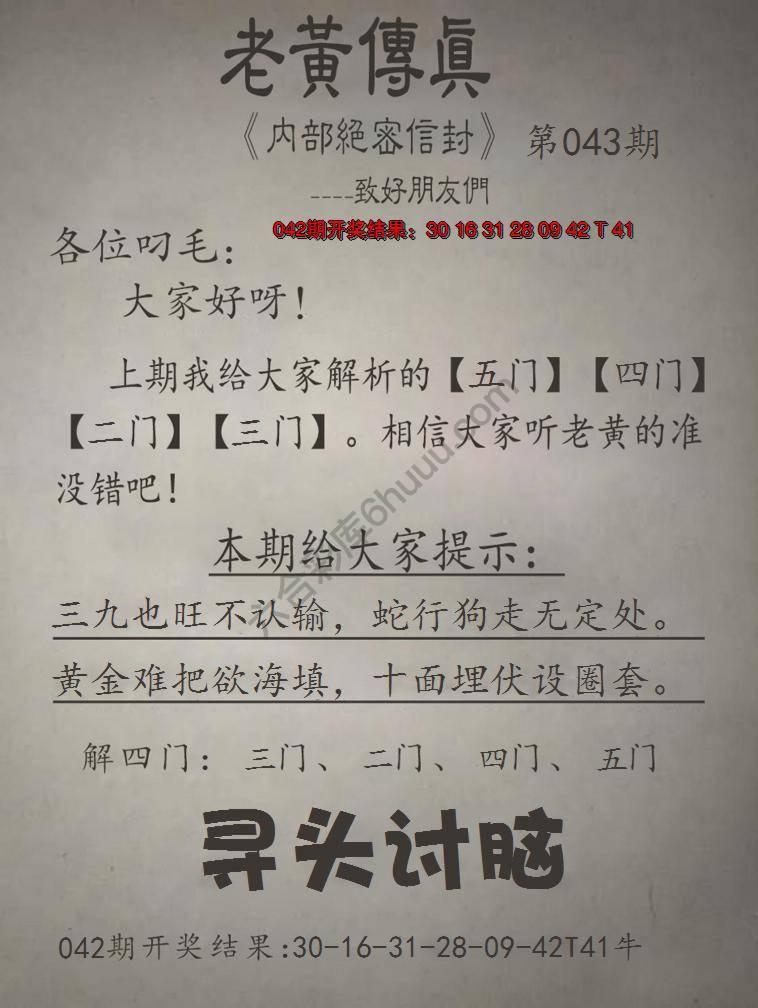 老黃傳眞
《内部絕密信封》 第043期
----致好朋友們
042期开奖结果：30 16 31 28 09 42 T 41
各位叼毛：
大家好呀！
上期我给大家解析的【五门】【四门】
【二门】【三门】。相信大家听老黄的准
没错吧！
本期给大家提示：
三九也旺不认输，蛇行狗走无定处。
黄金难把欲海填，十面埋伏设圈套。
解四门：三门、二门、四门、五门
寻头讨脑
042期开奖结果:30-16-31-28-09-42T41牛
六合彩库6huuu.com